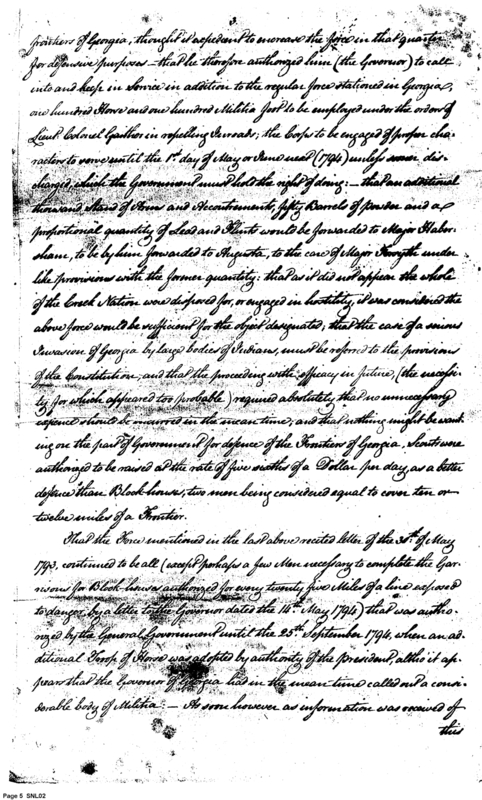 3
frontiers of Georgia, thought it expedient to increase the force in that quarter
for defensive purposes — that he therefore authorized him (the Governor) to call
into and keep in Service in addition to the regular force stationed in Georgia,
one hundred Horse and one hundred Militia foot to be employed under the orders of
Lieut. Colonel Gaither in repelling Inroads; the Corps to be engaged of proper cha-
racters to serve until the 1st day of May or June next (1794) unless sooner dis-
charged, which the Government must hold the right of doing: — that an additional
thousand Stand of Arms and Accoutrements, fifty Barrels of powder and a
proportional quantity of Lead and Flints would be forwarded to Major Haber-
sham, to be by him forwarded to Augusta, to the care of Major Forsyth under
like provisions with the former quantity: that as it did not appear the whole
of the Creek Nation were disposed for, or engaged in hostility, it was considered the
above force would be sufficient for the object designated, that the case of a serious
Invasion of Georgia by large bodies of Indians, must be referred to the provisions
of the Constitution, and that the proceeding with efficacy in future, (the necessi-
ty for which appeared too probable) required absolutely that no unnecessary
expence should be incurred in the mean time, and that nothing might be want-
ing on the part of Government for defence of the Frontiers of Georgia, Scouts were
authorized to be raised at the rate of five sixths of a Dollar per day, as a better
defence than Block-houses, two men being considered equal to cover ten or
twelve miles of a Frontier.
That the Force mentioned in the last above recited letter of the 30th of May
1793, continued to be all (except perhaps a few Men necessary to complete the Gar-
risons for Block-houses authorized for every twenty five Miles of a line exposed
to danger, by a letter to the Governor dated the 14th May 1794) that was autho-
rized by the General Government until the 25th September 1794, when an ad-
ditional Troop of Horse was adopted by authority of the president, altho' it ap-
pears that the Governor of Georgia had in the mean time called out a consi-
derable body of Militia — As soon however as information was received of
this
Page 5 SNL02